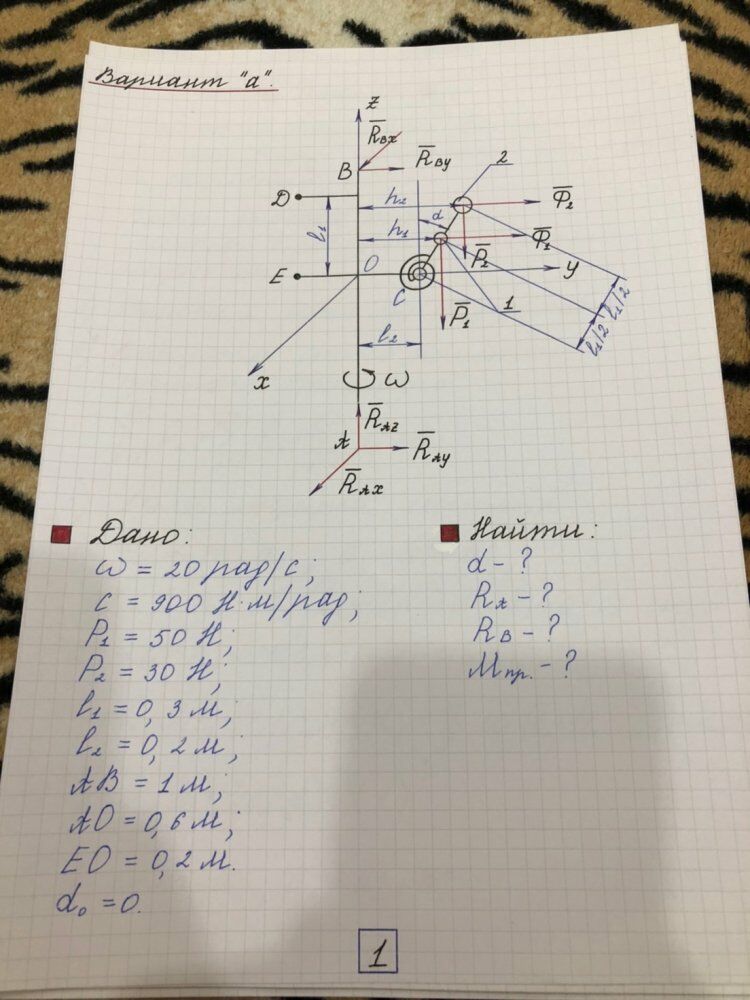 Вариант "а".
z
R̅Bx
R̅By
B
2
D
h₂
d
Φ̅₂
l₁
h₁
Φ̅₁
P̅₂
E
O
y
C
P̅₁
1
l₁/2
l₁/2
l₂
x
ω
R̅Az
A
R̅Ay
R̅Ax
Дано:
ω = 20 рад/с;
c = 900 Н·м/рад;
P₁ = 50 Н;
P₂ = 30 Н;
l₁ = 0,3 м;
l₂ = 0,2 м;
AB = 1 м;
AO = 0,6 м;
EO = 0,2 м.
d₀ = 0.
Найти:
d - ?
RA - ?
RB - ?
Mпр. - ?
1